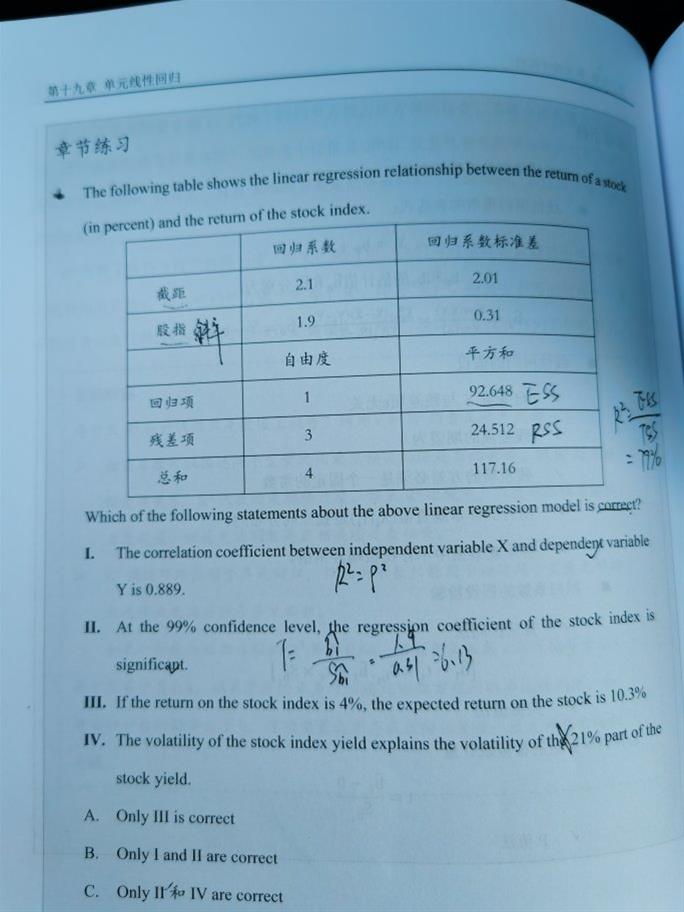 第十九章 单元线性回归
章节练习
The following table shows the linear regression relationship between the return of a stock
(in percent) and the return of the stock index.
回归系数 回归系数标准差
截距 2.1 2.01
股指 斜率 1.9 0.31
自由度 平方和
回归项 1 92.648 ESS
残差项 3 24.512 RSS
总和 4 117.16
R²= ESS
TSS
= 79%
Which of the following statements about the above linear regression model is correct?
I. The correlation coefficient between independent variable X and dependent variable
Y is 0.889.
R²=ρ²
II. At the 99% confidence level, the regression coefficient of the stock index is
significant.
T= b̂1 / Sb̂1 = 1.9 / 0.31 =6.13
III. If the return on the stock index is 4%, the expected return on the stock is 10.3%
IV. The volatility of the stock index yield explains the volatility of the 21% part of the
stock yield.
A. Only III is correct
B. Only I and II are correct
C. Only II 和 IV are correct